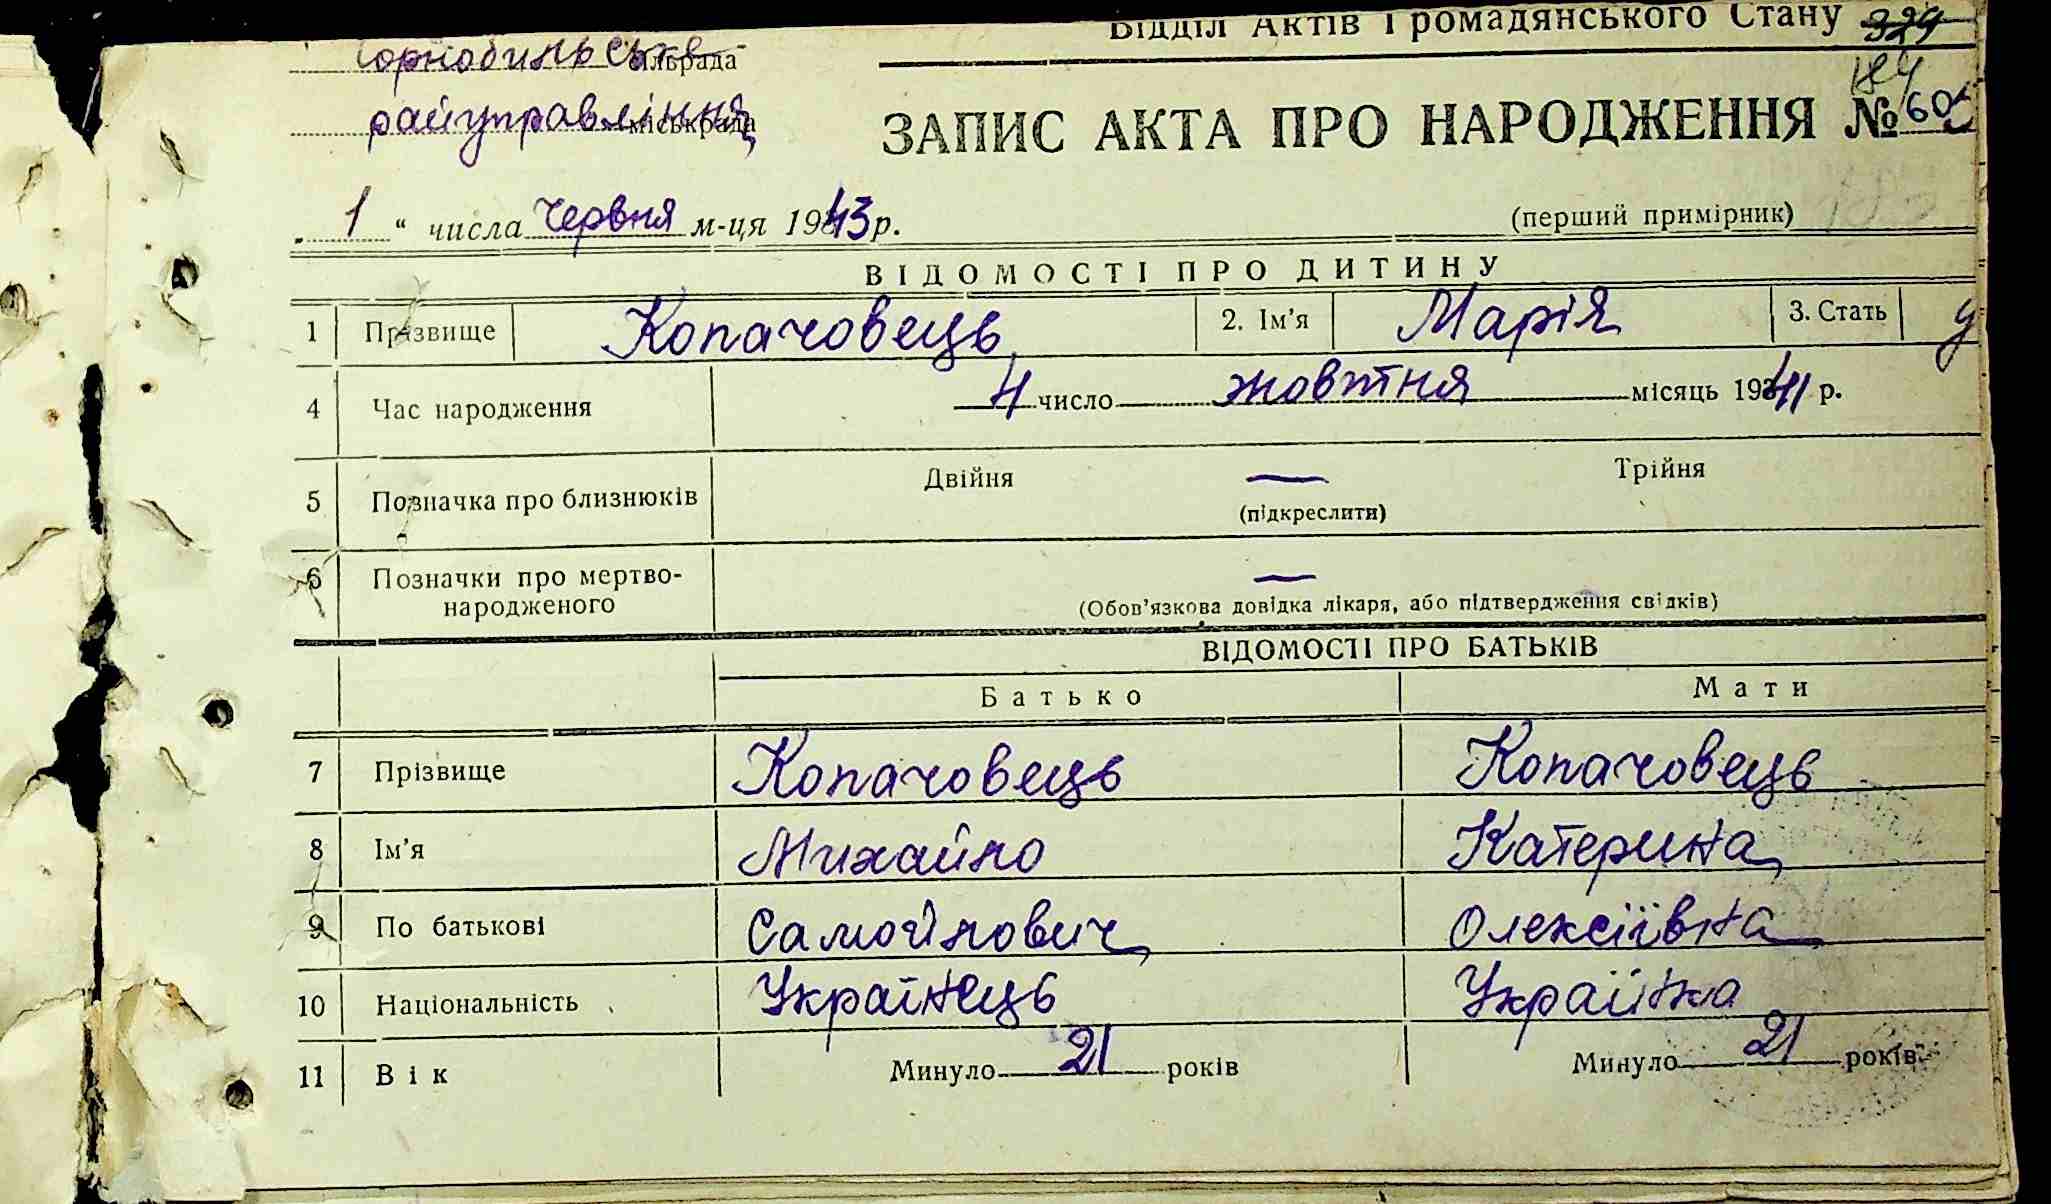 Відділ Актів Громадянського Стану 329
Чорнобильське сільрада
184
райуправління міськрада
ЗАПИС АКТА ПРО НАРОДЖЕННЯ № 605
„ 1 “ числа червня м-ця 1943 р.
(перший примірник)
ВІДОМОСТІ ПРО ДИТИНУ
1 Прізвище Копачовець 2. Ім’я Марія 3. Стать
4 Час народження 4 число жовтня місяць 1941 р.
5 Позначка про близнюків Двійня — Трійня
(підкреслити)
6 Позначки про мертво-
народженого —
(Обов’язкова довідка лікаря, або підтвердження свідків)
ВІДОМОСТІ ПРО БАТЬКІВ
Батько Мати
7 Прізвище Копачовець Копачовець
8 Ім’я Михайло Катерина
9 По батькові Самойлович Олексіївна
10 Національність Українець Українка
11 Вік Минуло 21 років Минуло 21 років